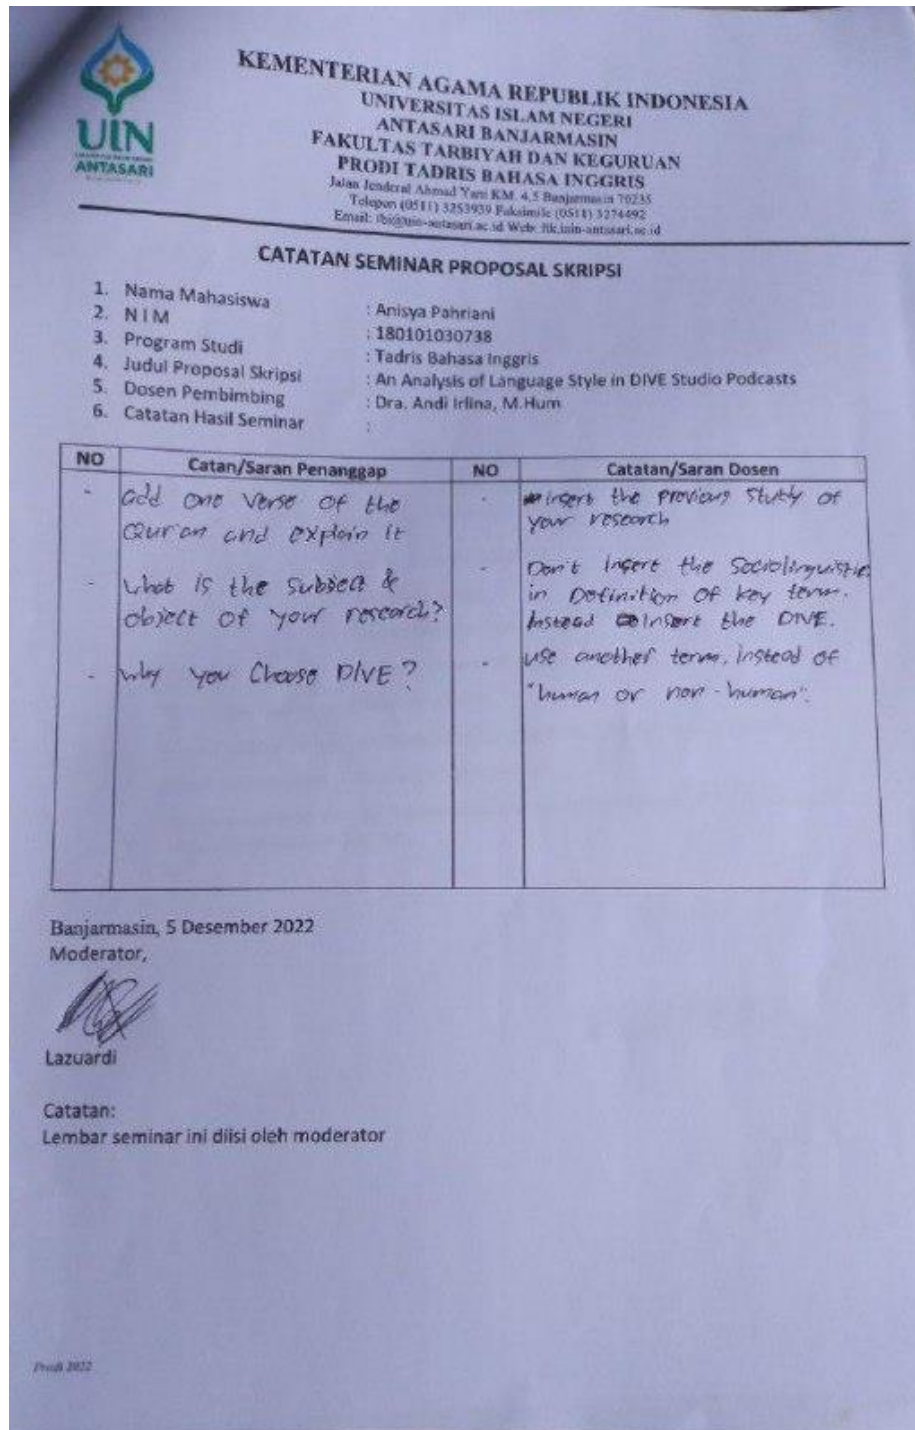 UIN
ANTASARI
KEMENTERIAN AGAMA REPUBLIK INDONESIA
UNIVERSITAS ISLAM NEGERI
ANTASARI BANJARMASIN
FAKULTAS TARBIYAH DAN KEGURUAN
PRODI TADRIS BAHASA INGGRIS
Jalan Jenderal Ahmad Yani KM. 4,5 Banjarmasin 70235
Telepon (0511) 3253939 Faksimile (0511) 3274492
Email: tbi@uin-antasari.ac.id Web: ftk.uin-antasari.ac.id
CATATAN SEMINAR PROPOSAL SKRIPSI
1. Nama Mahasiswa : Anisya Pahriani
2. N I M : 180101030738
3. Program Studi : Tadris Bahasa Inggris
4. Judul Proposal Skripsi : An Analysis of Language Style in DIVE Studio Podcasts
5. Dosen Pembimbing : Dra. Andi Irlina, M.Hum
6. Catatan Hasil Seminar :
NO Catan/Saran Penanggap NO Catatan/Saran Dosen
- add one verse of the
Qur'an and explain it
- What is the subject &
object of your research?
- Why you Choose DIVE?
- insert the previous study of
your research
- Don't insert the Sociolinguistic
in Definition of key term.
Instead insert the DIVE.
- use another term, instead of
"human or non-human".
Banjarmasin, 5 Desember 2022
Moderator,
Lazuardi
Catatan:
Lembar seminar ini diisi oleh moderator
Prodi 2022